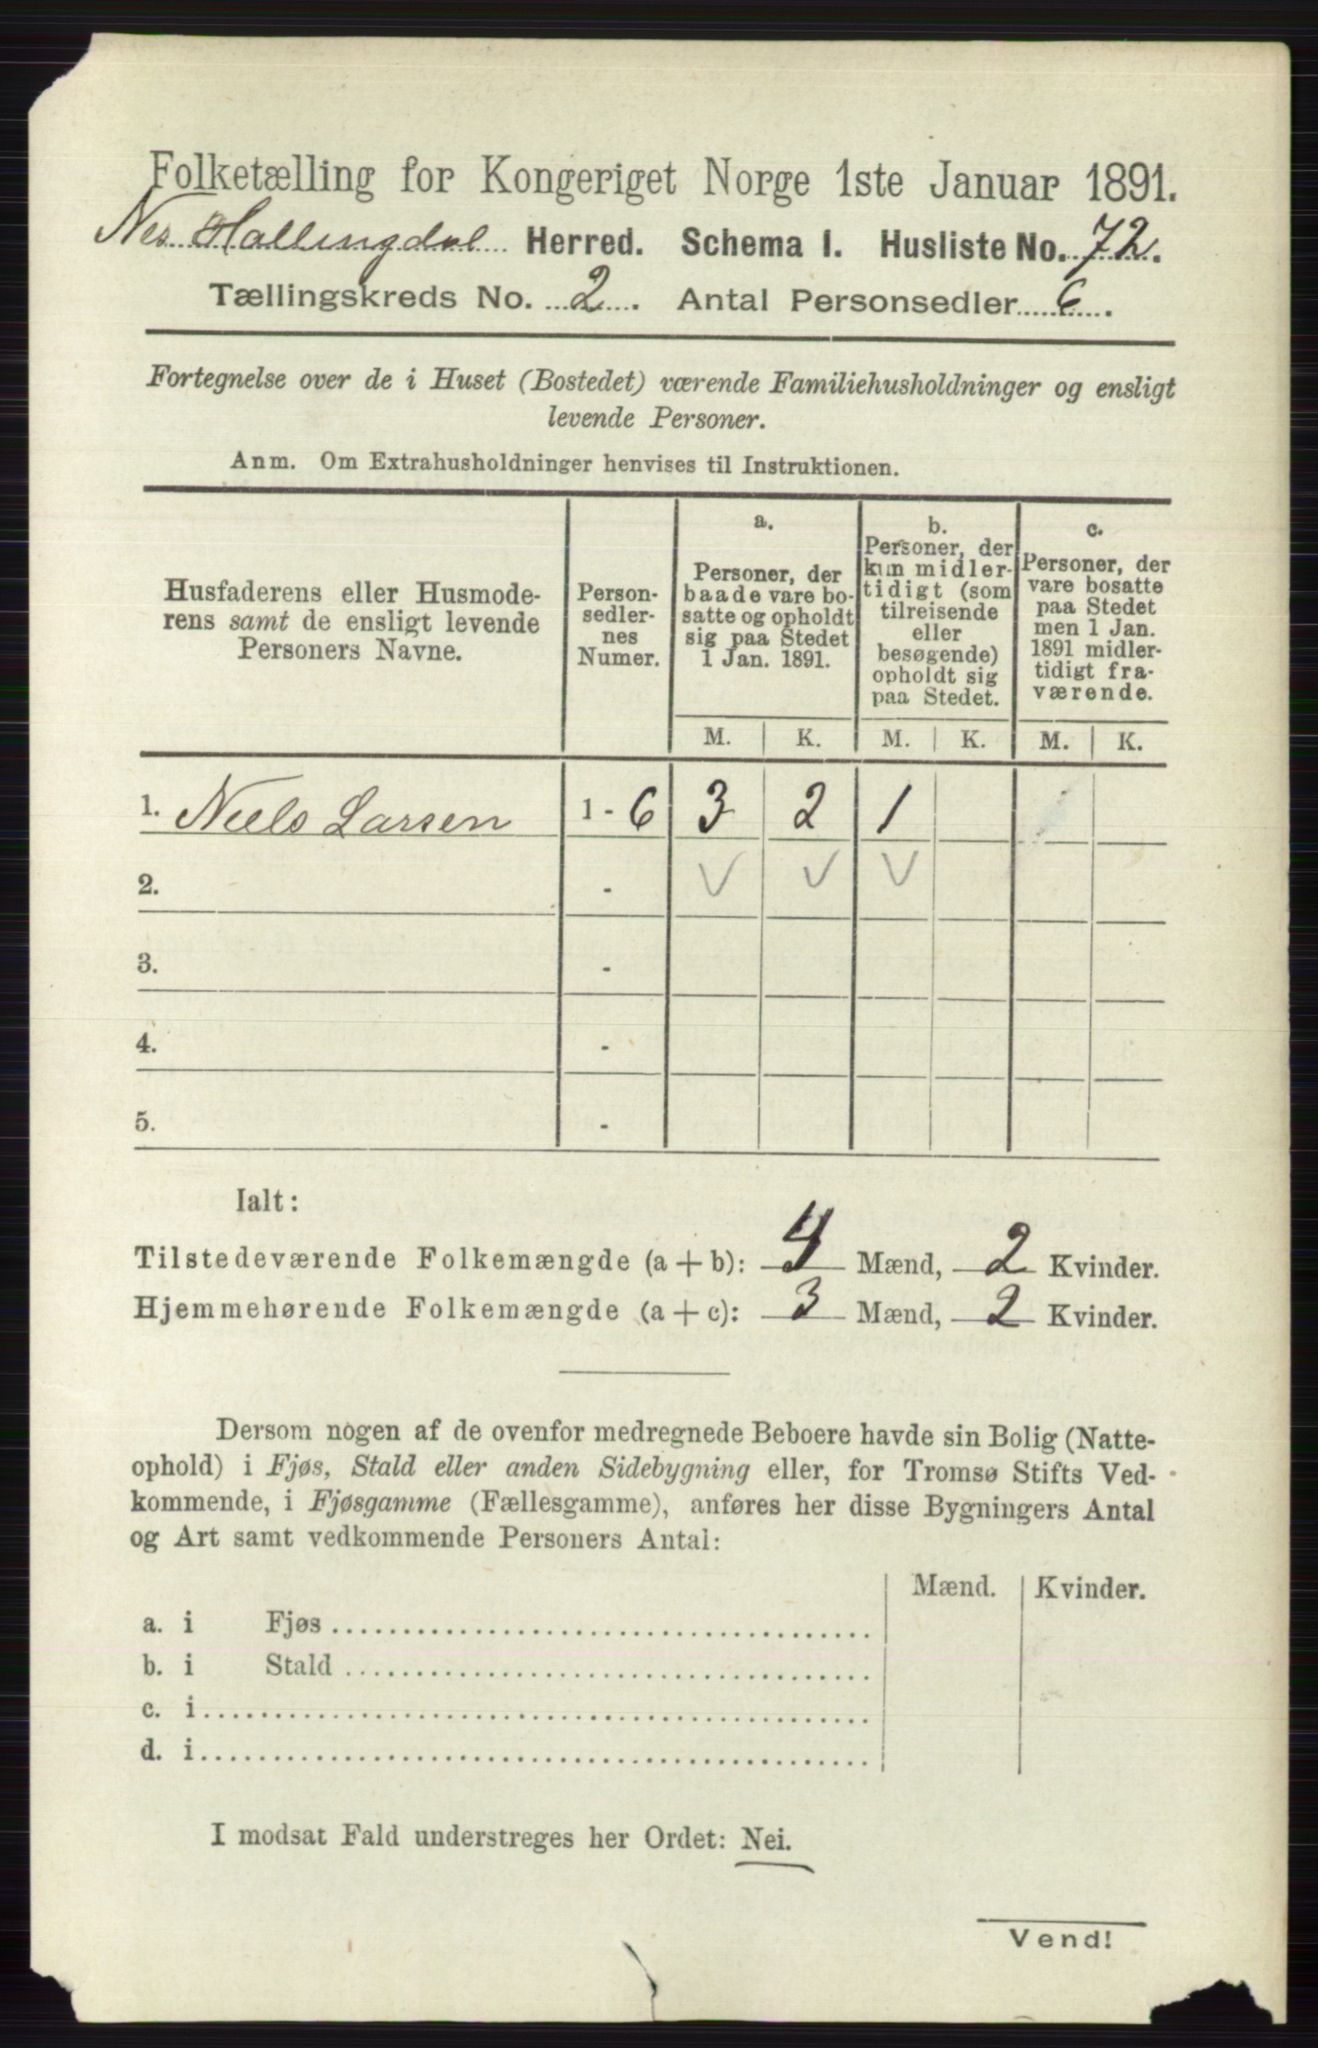 Folketælling for Kongeriget Norge 1ste Januar 1891.
Nes Hallingdal Herred. Schema I. Husliste No. 72.
Tællingskreds No. 2. Antal Personsedler 6.
Fortegnelse over de i Huset (Bostedet) værende Familiehusholdninger og ensligt
levende Personer.
Anm. Om Extrahusholdninger henvises til Instruktionen.
Husfaderens eller Husmode-
rens samt de ensligt levende
Personers Navne.
Person-
sedler-
nes
Numer.
a.
Personer, der
baade vare bo-
satte og opholdt
sig paa Stedet
1 Jan. 1891.
b.
Personer, der
kun midler-
tidigt (som
tilreisende
eller
besøgende)
opholdt sig
paa Stedet.
c.
Personer, der
vare bosatte
paa Stedet
men 1 Jan.
1891 midler-
tidigt fra-
værende.
M. K. M. K. M. K.
1. Niels Larsen 1 - 6 3 2 1
2. -
3. -
4. -
5. -
Ialt:
Tilstedeværende Folkemængde (a + b): 4 Mænd, 2 Kvinder.
Hjemmehørende Folkemængde (a + c): 3 Mænd, 2 Kvinder.
Dersom nogen af de ovenfor medregnede Beboere havde sin Bolig (Natte-
ophold) i Fjøs, Stald eller anden Sidebygning eller, for Tromsø Stifts Ved-
kommende, i Fjøsgamme (Fællesgamme), anføres her disse Bygningers Antal
og Art samt vedkommende Personers Antal:
Mænd. Kvinder.
a. i Fjøs
b. i Stald
c. i
d. i
I modsat Fald understreges her Ordet: Nei.
Vend!